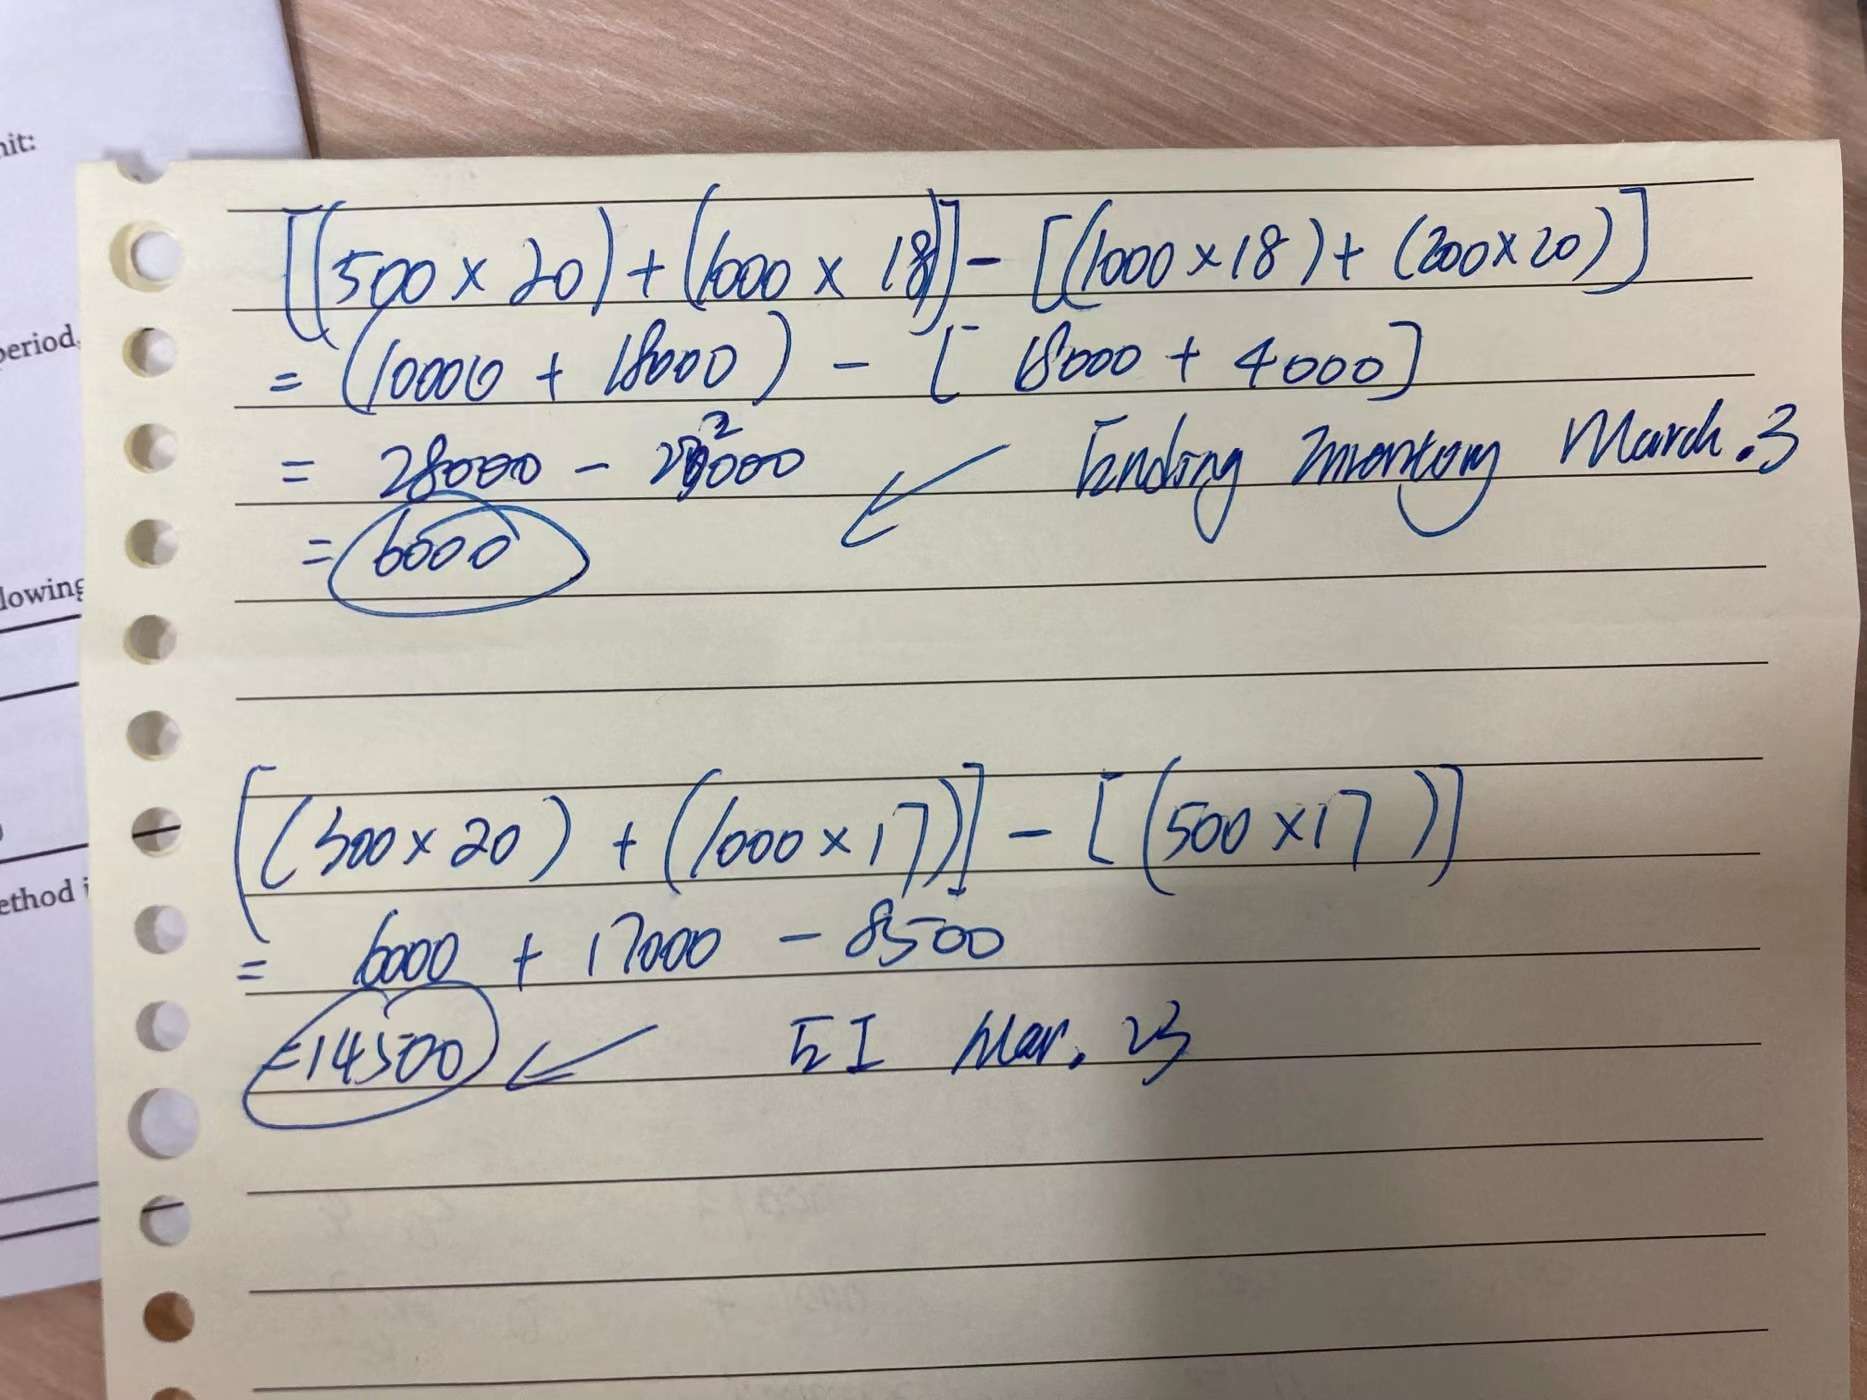 nit:
period,
lowing
ethod i
[(500 × 20) + (1000 × 18)] - [(1000 × 18) + (200 × 20)]
= (10000 + 18000) - [18000 + 4000]
= 28000 - 22000
Ending Inventory March. 3
= 6000
[(300 × 20) + (1000 × 17)] - [(500 × 17)]
= 6000 + 17000 - 8500
= 14500
EI Mar. 23